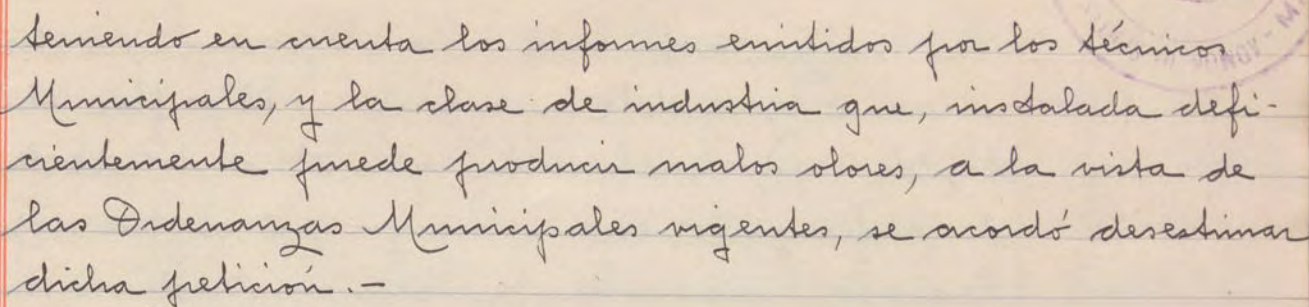 teniendo en cuenta los informes emitidos por los técnicos
Municipales, y la clase de industria que, instalada defi-
cientemente puede producir malos olores, a la vista de
las Ordenanzas Municipales vigentes, se acordó desestimar
dicha petición.-